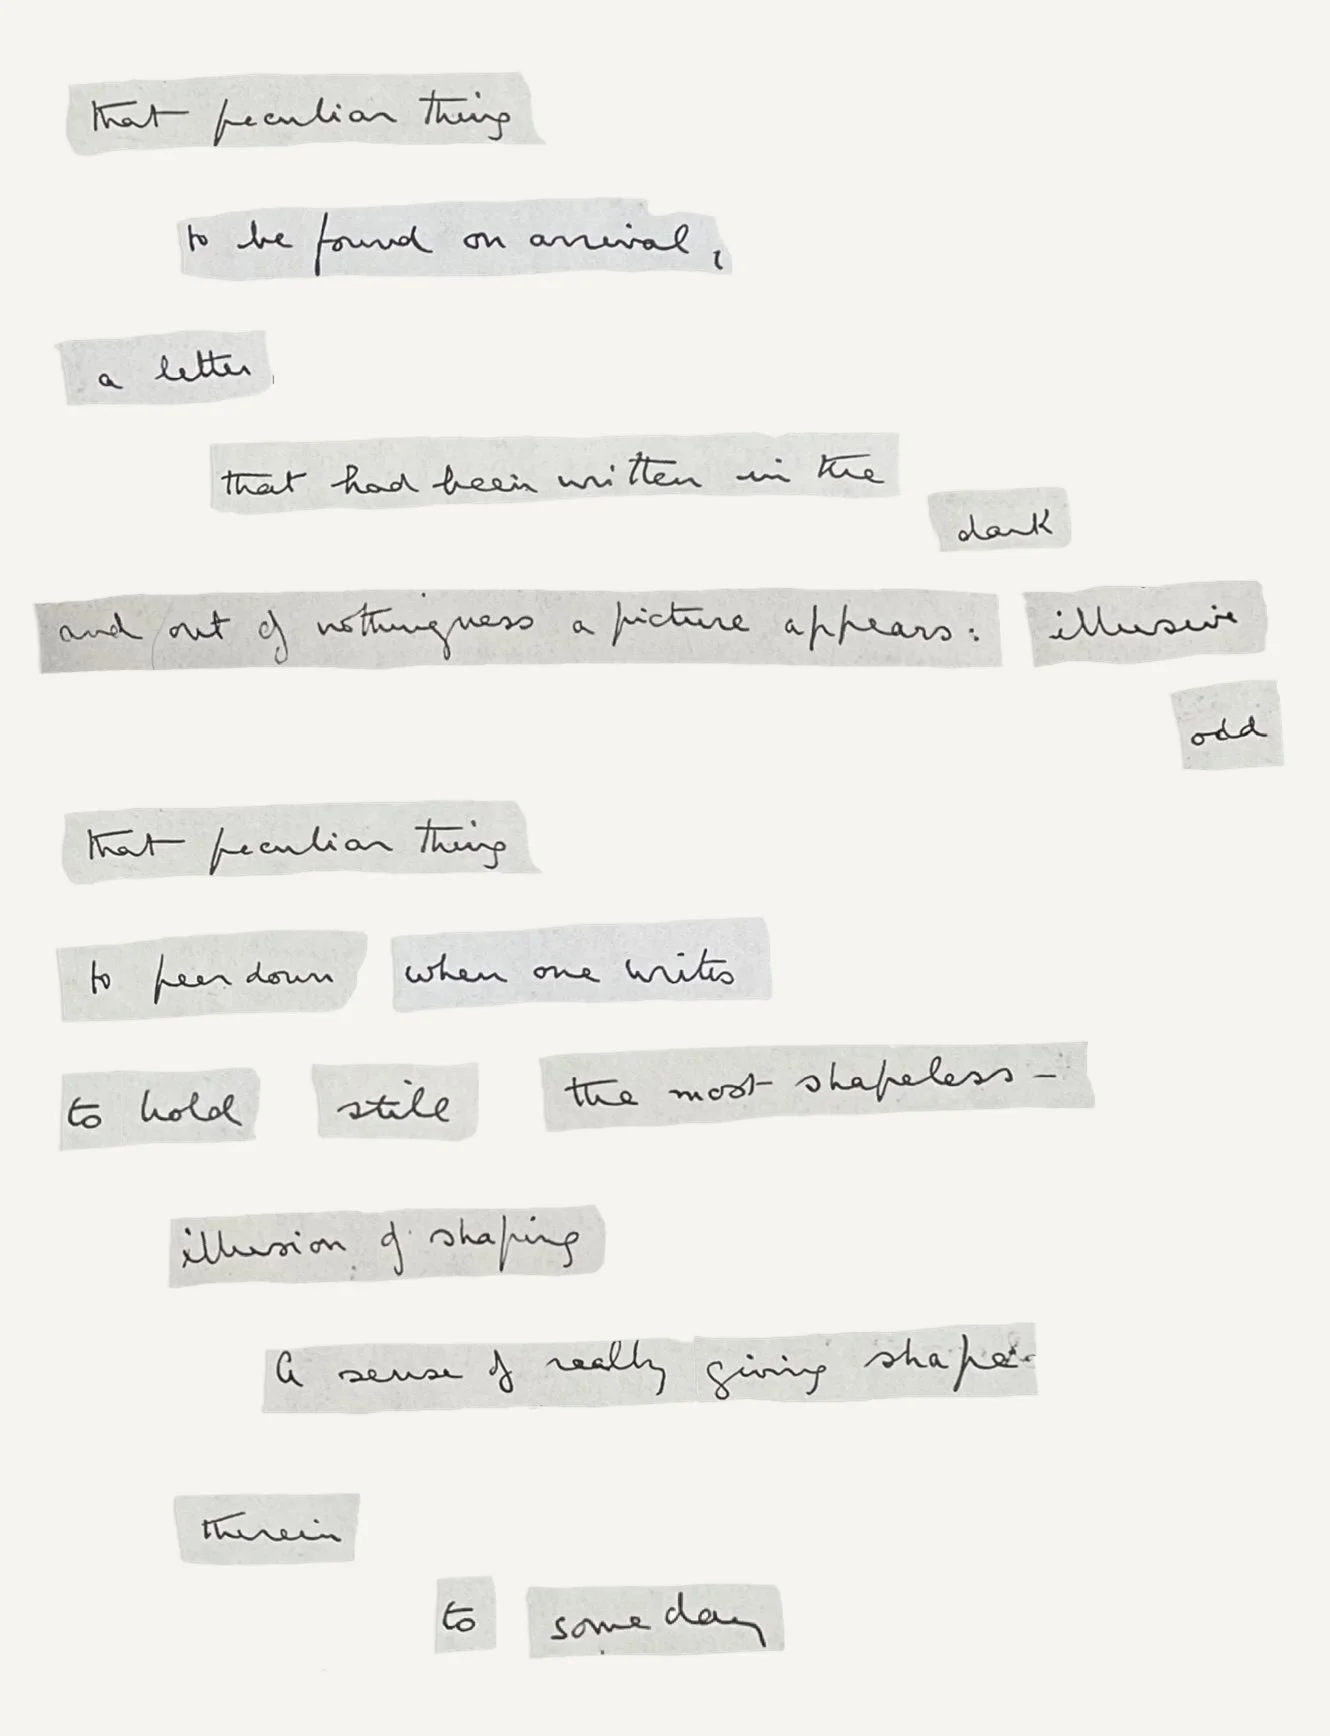 that peculiar thing
to be found on arrival,
a letter
that had been written in the
dark
and out of nothingness a picture appears: illusive
odd
that peculiar thing
to peer down when one writes
to hold still the most shapeless –
illusion of shaping
A sense of really giving shape.
therein
to some day